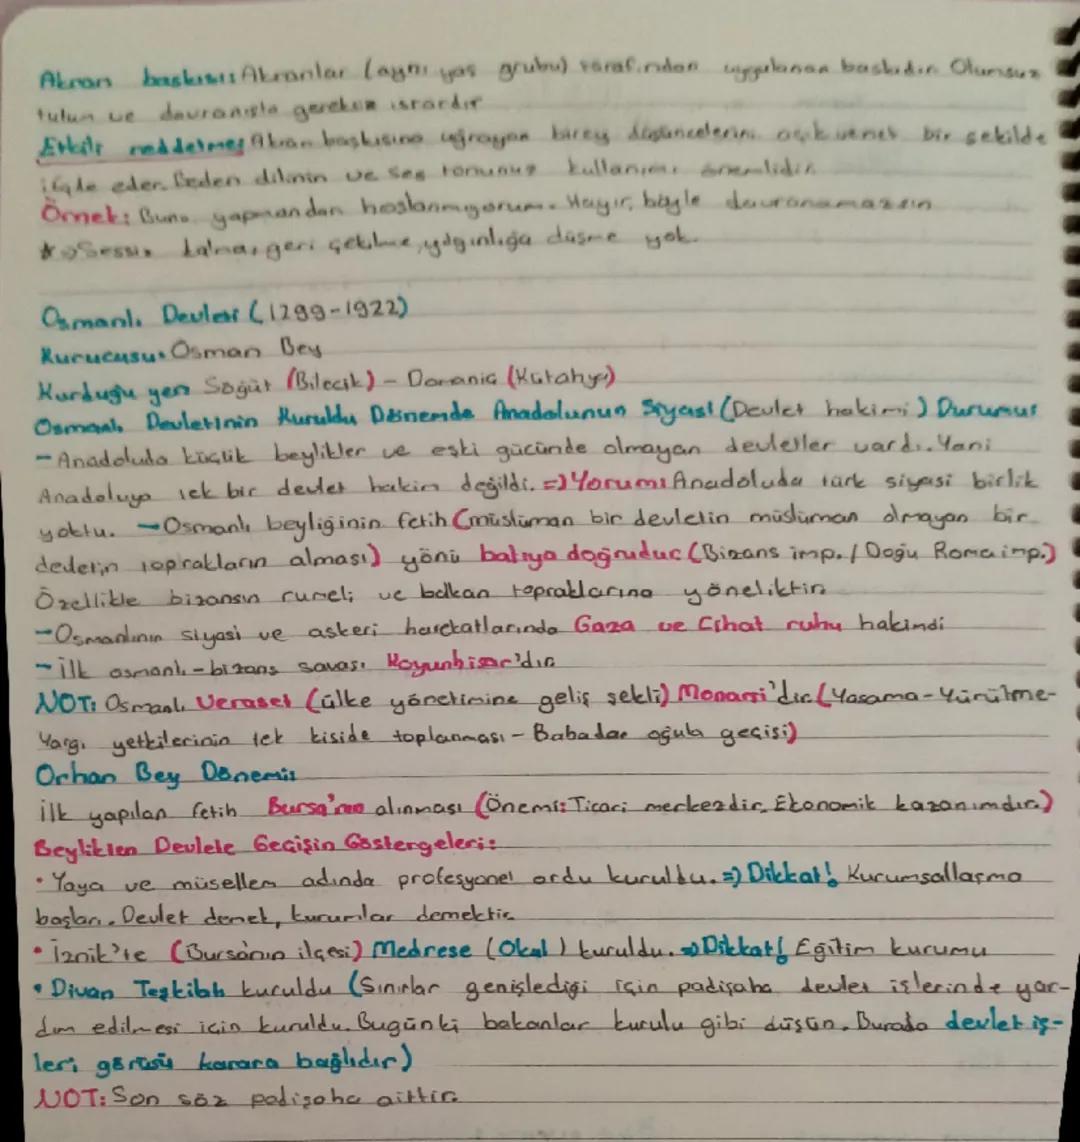 Akran baskısı: Akranlar (aynı yaş grubu) tarafından uygulanan baskıdır. Olumsuz
tutum ve davranışta gereksiz ısrardır
Etkili reddetme: Akran baskısına uğrayan birey düşüncelerini açık ve net bir şekilde
ifade eder. Beden dilinin ve ses tonunuz kullanımı önemlidir.
Örnek: Bunu yapmandan hoşlanmıyorum. Hayır, böyle davranamazsın
Sessiz kalma, geri çekilme, yılgınlığa düşme yok.
Osmanlı Devleti (1299-1922)
Kurucusu: Osman Bey
Kurduğu yer: Söğüt (Bilecik) - Domaniç (Kütahya)
Osmanlı Devletinin Kuruldu Dönemde Anadolunun Siyasi (Devlet hakimi) Durumu:
- Anadoluda küçük beylikler ve eski gücünde olmayan devletler vardı. Yani
Anadoluya tek bir devlet hakim değildi. => Yorum: Anadoluda türk siyasi birlik
yoktu. - Osmanlı beyliğinin fetih (müslüman bir devletin müslüman olmayan bir
toprakların alması) yönü batıya doğrudur (Bizans imp. / Doğu Roma imp.)
Özellikle bizansın rumeli ve balkan topraklarına yöneliktir
- Osmanlının siyasi ve askeri harekatlarında Gaza ve Cihat ruhu hakimdi
- ilk osmanlı-bizans savaşı Koyunhisar'dır
NOT: Osmanlı Veraset (ülke yönetimine geliş şekli) Monarşi'dir. (Yasama-Yürütme-
Yargı yetkilerinin tek kişide toplanması - Babadan oğula geçişi)
Orhan Bey Dönemi:
İlk yapılan fetih Bursa'nın alınması (Önemi: Ticari merkezdir. Ekonomik kazanımdır.)
Beylikten Devlete Geçişin Göstergeleri:
• Yaya ve müsellem adında profesyonel ordu kuruldu. => Dikkat! Kurumsallaşma
başları. Devlet demek, kurumlar demektir
• İznik'te (Bursanın ilçesi) Medrese (Okul) kuruldu. => Dikkat! Eğitim kurumu
• Divan Teşkilatı kuruldu (Sınırlar genişlediği için padişaha devlet işlerinde yar-
dım edilmesi için kuruldu. Bugünki bakanlar kurulu gibi düşün. Burada devlet iş-
leri görüşü karara bağlıdır)
NOT: Son söz padişaha aittir.